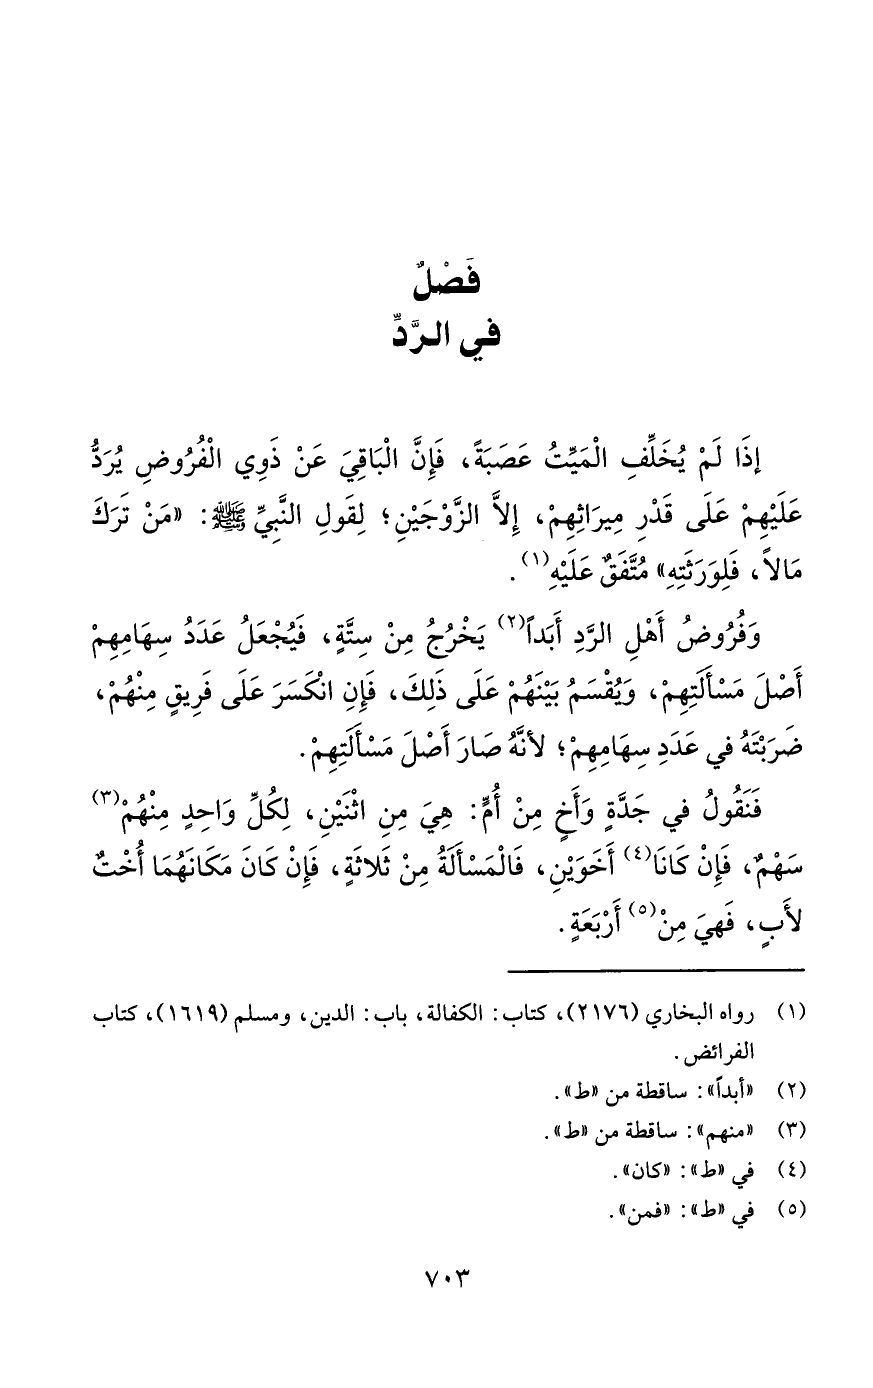 فَصْلٌ
في الرَّدِّ
إذَا لَمْ يُخَلِّفِ الْمَيِّتُ عَصَبَةً، فَإِنَّ الْبَاقِيَ عَنْ ذَوِي الْفُرُوضِ يُرَدُّ
عَلَيْهِمْ عَلَى قَدْرِ مِيرَاثِهِمْ، إِلاَّ الزَّوْجَيْنِ؛ لِقَولِ النَّبِيِّ ﷺ: «مَنْ تَرَكَ
مَالاً، فَلِوَرَثَتِهِ» مُتَّفَقٌ عَلَيْهِ(١).
وَفُرُوضُ أَهْلِ الرَّدِ أَبَداً(٢) يَخْرُجُ مِنْ سِتَّةٍ، فَيُجْعَلُ عَدَدُ سِهَامِهِمْ
أَصْلَ مَسْأَلَتِهِمْ، وَيُقْسَمُ بَيْنَهُمْ عَلَى ذَلِكَ، فَإِنِ انْكَسَرَ عَلَى فَرِيقٍ مِنْهُمْ،
ضَرَبْتَهُ في عَدَدِ سِهَامِهِمْ؛ لأنَّهُ صَارَ أَصْلَ مَسْأَلَتِهِمْ.
فَنَقُولُ في جَدَّةٍ وَأَخٍ مِنْ أُمٍّ: هِيَ مِنِ اثْنَيْنِ، لِكُلِّ وَاحِدٍ مِنْهُمْ(٣)
سَهْمٌ، فَإِنْ كَانَا(٤) أَخَوَيْنِ، فَالْمَسْأَلَةُ مِنْ ثَلاثَةٍ، فَإِنْ كَانَ مَكَانَهُمَا أُخْتٌ
لأَبٍ، فَهِيَ مِنْ(٥) أَرْبَعَةٍ.
(١) رواه البخاري (٢١٧٦)، كتاب: الكفالة، باب: الدين، ومسلم (١٦١٩)، كتاب
الفرائض.
(٢) «أبداً»: ساقطة من «ط».
(٣) «منهم»: ساقطة من «ط».
(٤) في «ط»: «كان».
(٥) في «ط»: «فمن».
٧٠٣